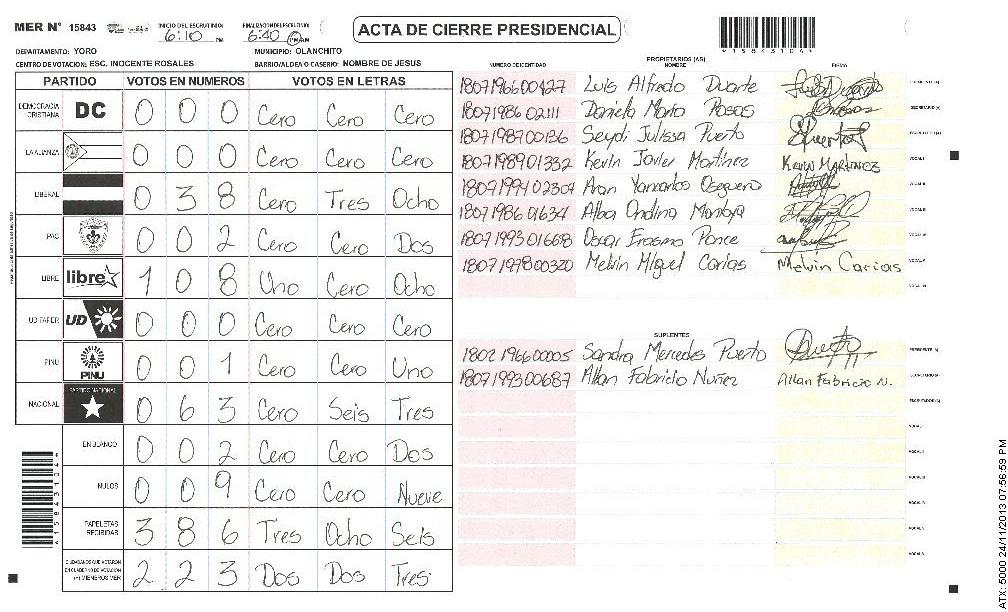 MER N° 15843
INICIO DEL ESCRUTINIO: 6:10 PM
FINALIZACION DEL ESCRUTINIO: 6:40 PM AM
ACTA DE CIERRE PRESIDENCIAL
DEPARTAMENTO: YORO
MUNICIPIO: OLANCHITO
CENTRO DE VOTACION: ESC. INOCENTE ROSALES
BARRIO/ALDEA O CASERIO: NOMBRE DE JESUS
PARTIDO VOTOS EN NUMEROS VOTOS EN LETRAS
DEMOCRACIA CRISTIANA DC 0 0 0 Cero Cero Cero
LA ALIANZA 0 0 0 Cero Cero Cero
LIBERAL 0 3 8 Cero Tres Ocho
PAC 0 0 2 Cero Cero Dos
LIBRE libre 1 0 8 Uno Cero Ocho
UD-FAPER UD 0 0 0 Cero Cero Cero
PINU PINU 0 0 1 Cero Cero Uno
NACIONAL PARTIDO NACIONAL 0 6 3 Cero Seis Tres
EN BLANCO 0 0 2 Cero Cero Dos
NULOS 0 0 9 Cero Cero Nueve
PAPELETAS RECIBIDAS 3 8 6 Tres Ocho Seis
CIUDADANOS QUE VOTARON EN CUADERNO DE VOTACION (+) MIEMBROS MER 2 2 3 Dos Dos Tres
PROPIETARIOS (AS)
NUMERO DE IDENTIDAD NOMBRE FIRMO
1807196600427 Luis Alfredo Duarte
1807198602111 Daniela Maria Posas
1807198700136 Seydi Julissa Puerto
1807198901332 Kevin Javier Martinez Kevin MARTINEZ
1807199102304 Aran Yancarlos Oseguera
1807198601634 Alba Ondina Montoya
1807199301668 Oscar Erasmo Ponce
1807197800320 Melvin Miguel Carias Melvin Carias
SUPLENTES
1802196600005 Sandra Mercedes Puerto
1807199300687 Allan Fabricio Nuñez Allan Fabricio N.
ATX: 5000 24/11/2013 07:56:59 PM